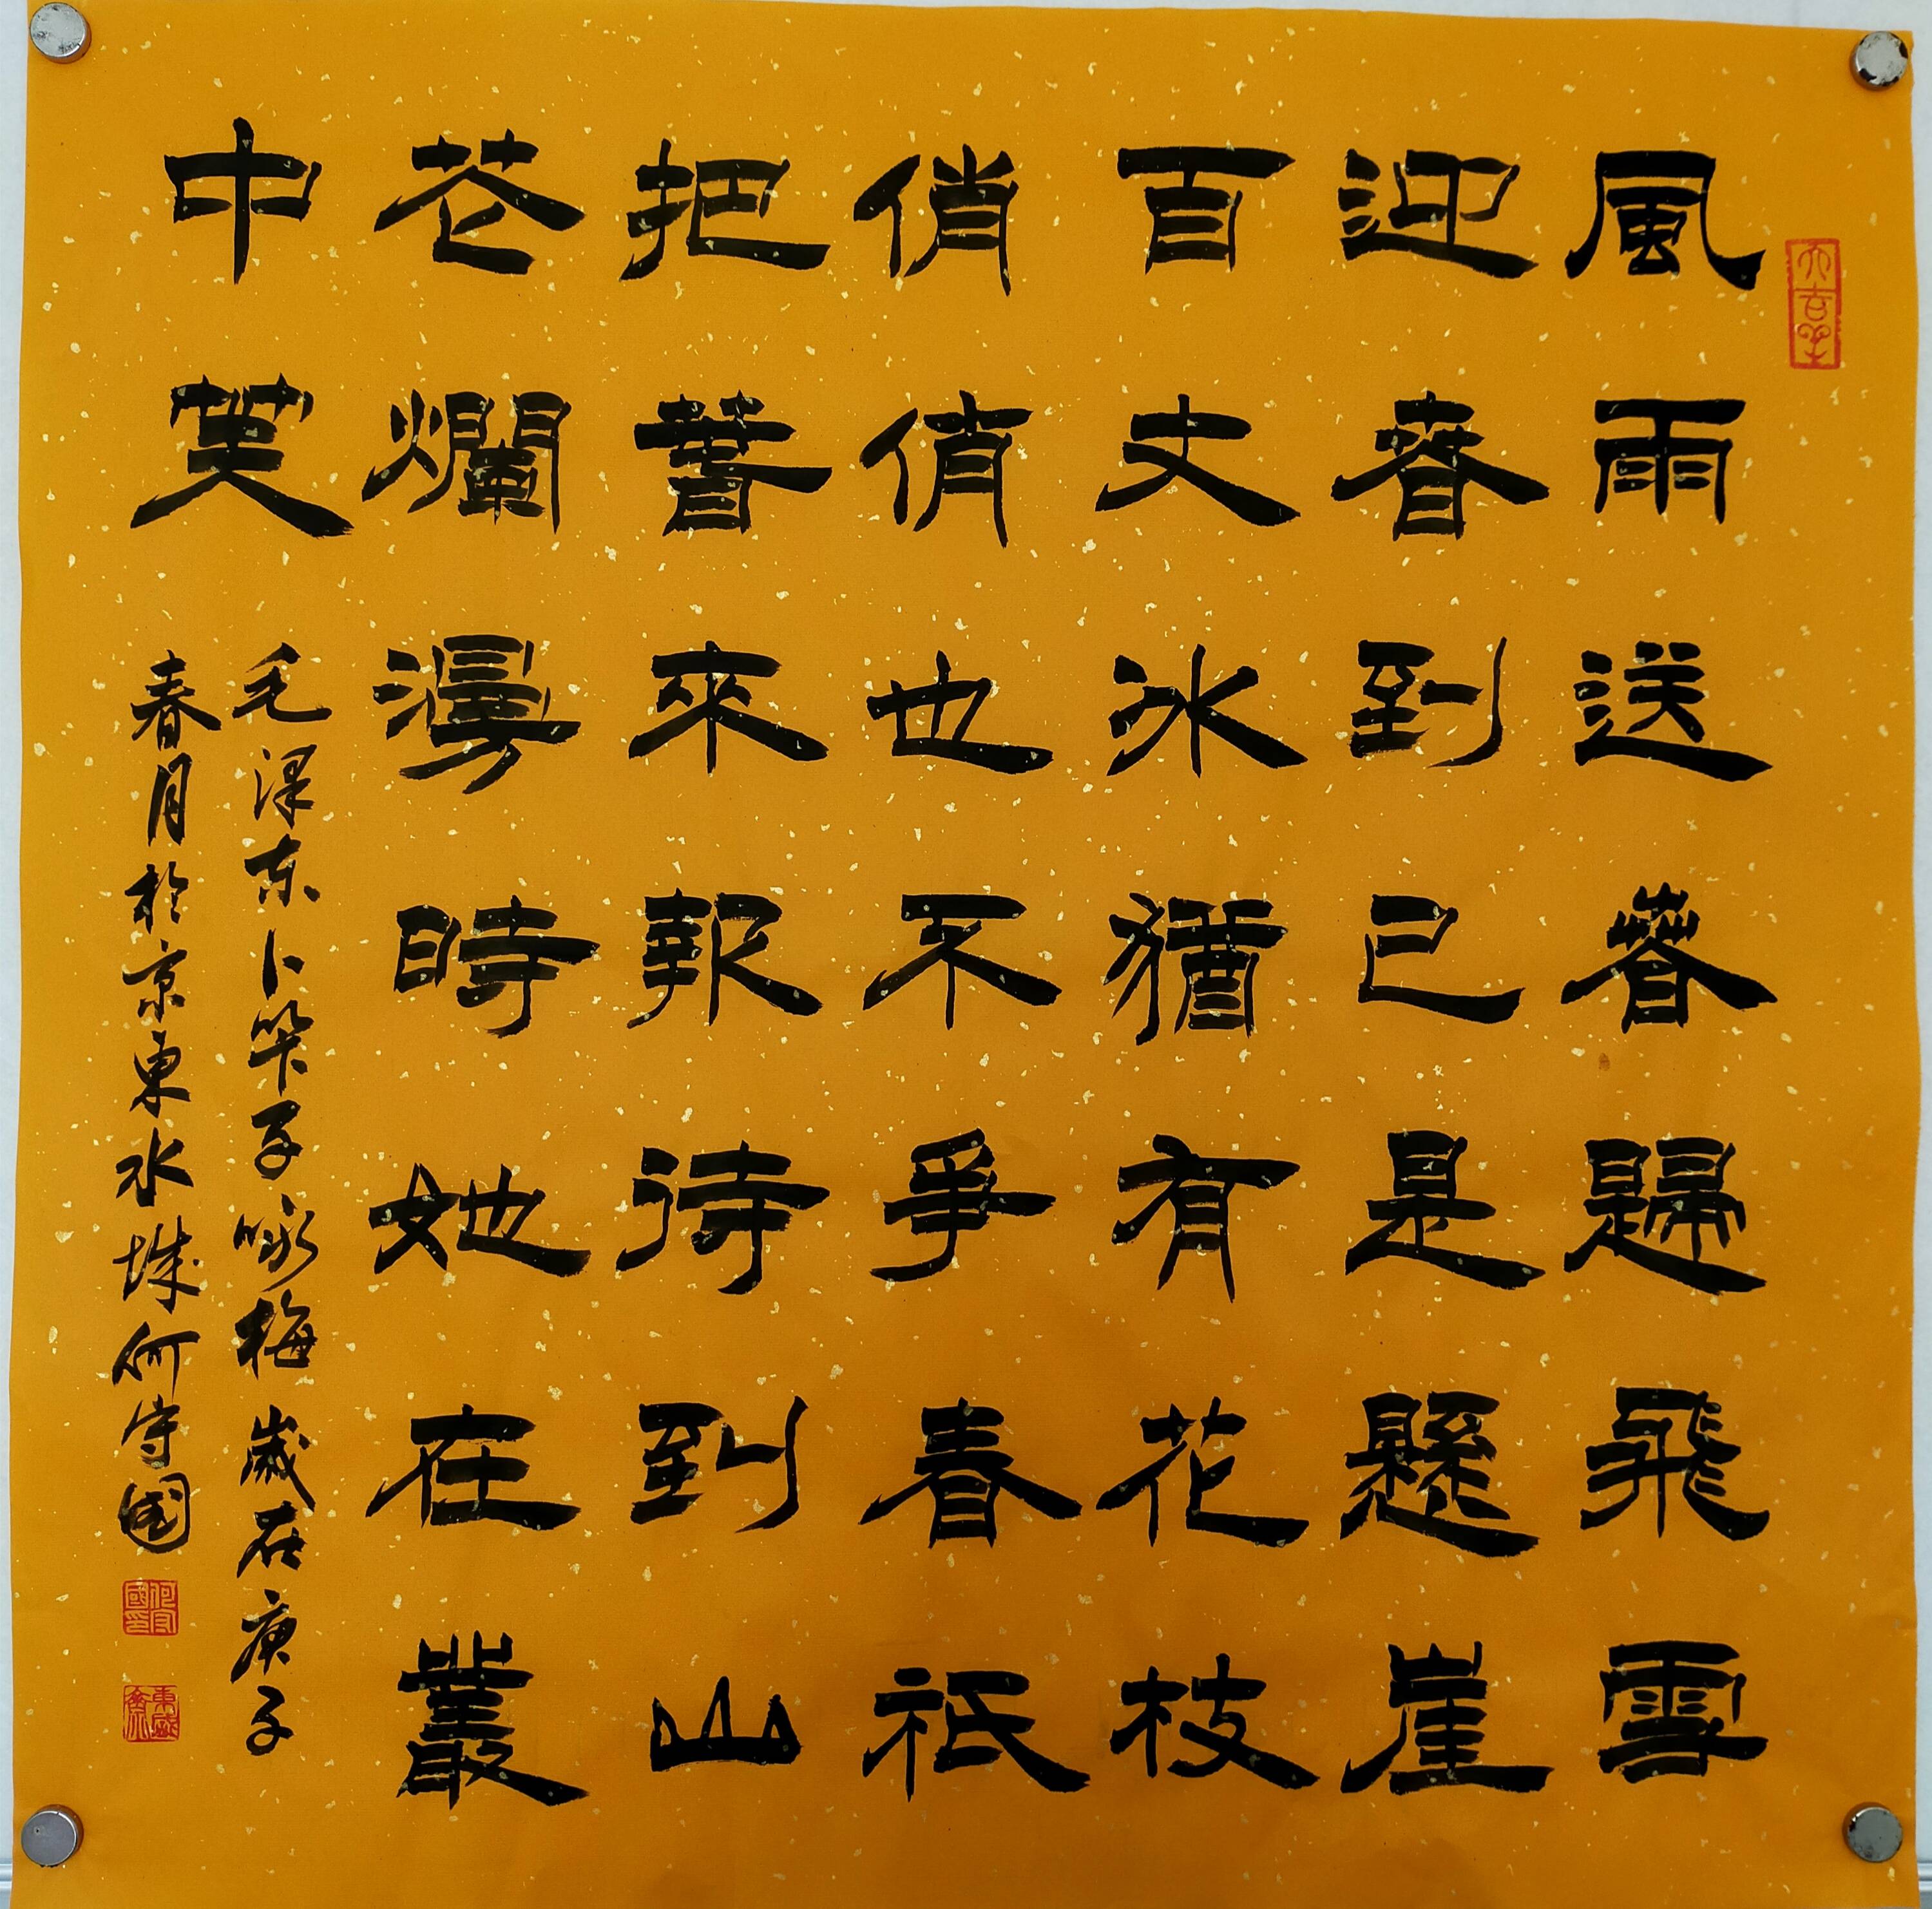 風雨送春歸飛雪
迎春到已是懸崖
百丈冰猶有花枝
俏俏也不爭春祇
把春來報待到山
花爛漫時她在叢
中笑
毛泽东卜算子咏梅歲在庚子
春月於京東水城何守國
何守國印